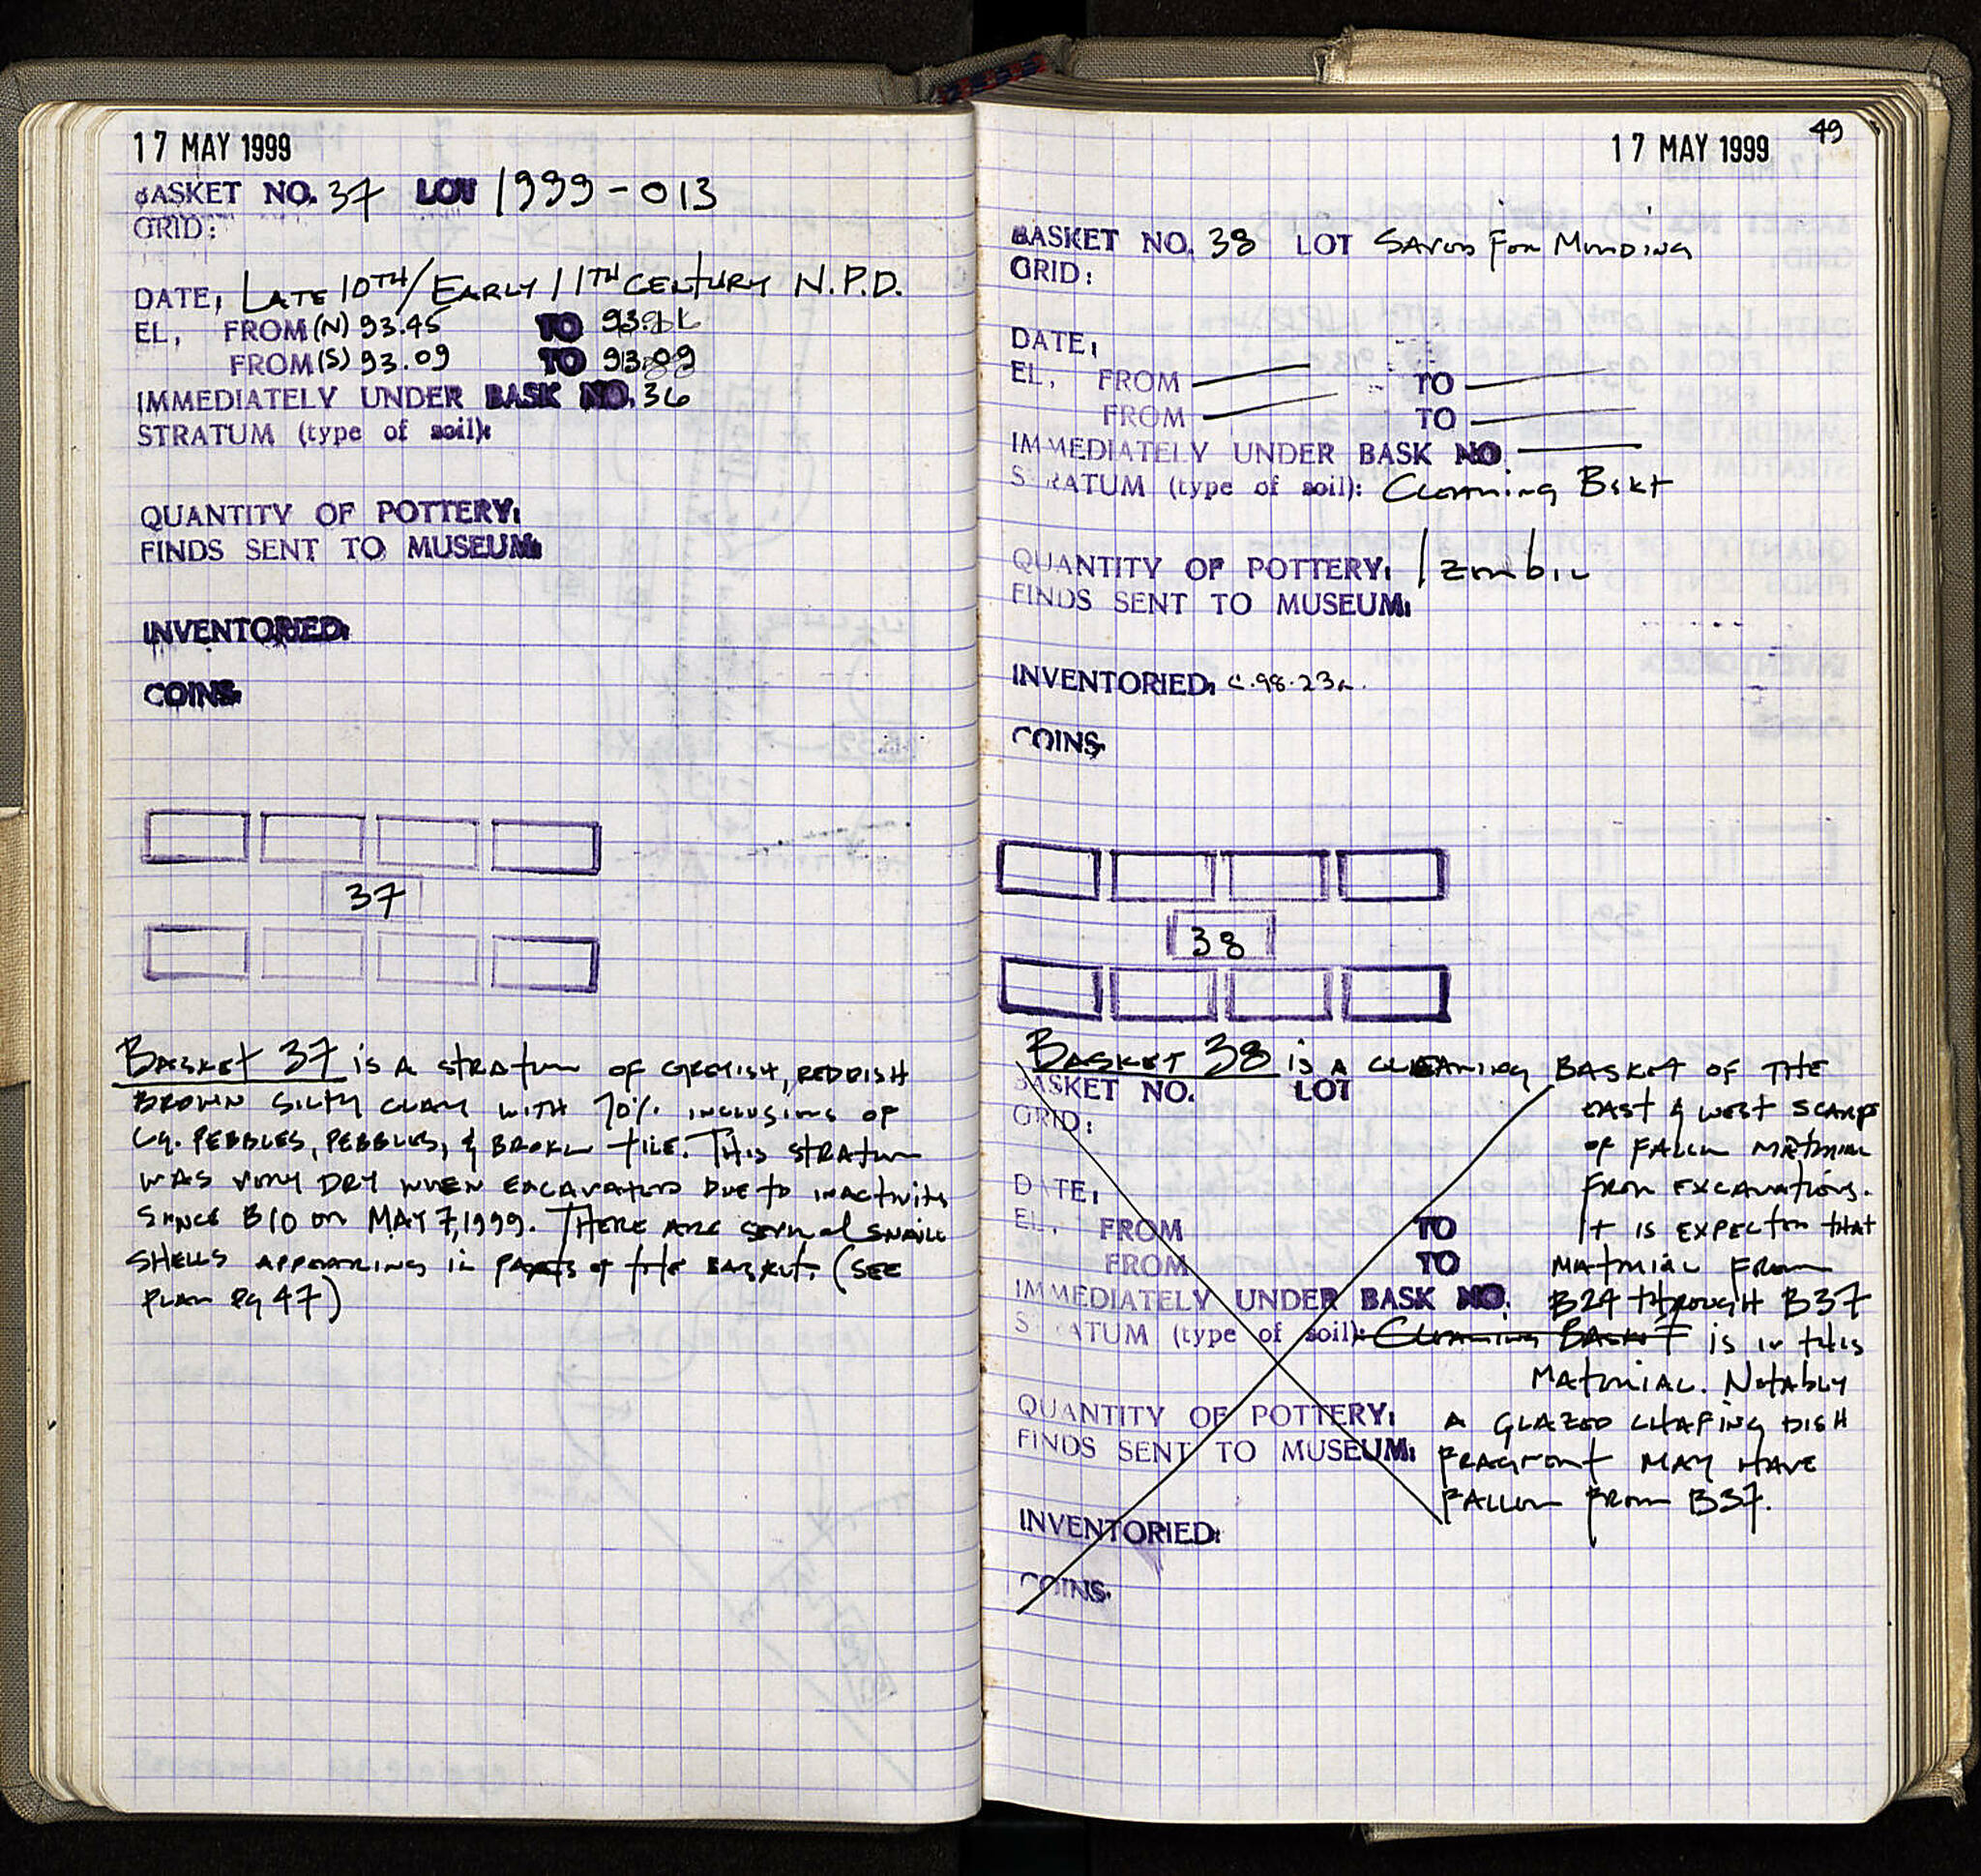 17 MAY 1999
BASKET NO. 37 LOT 1999-013
GRID:
DATE, LATE 10TH/EARLY 11TH CENTURY N.P.D.
EL, FROM (N) 93.45 TO
FROM (S) 93.09 TO
IMMEDIATELY UNDER BASK NO. 36
STRATUM (type of soil):
QUANTITY OF POTTERY:
FINDS SENT TO MUSEUM:
INVENTORIED:
COINS.
37
BASKET 37 IS A STRATUM OF GREYISH, REDDISH
BROWN SILTY CLAY WITH 70% INCLUSIONS OF
Lg. PEBBLES, PEBBLES, & BROKEN TILE. THIS STRATUM
WAS VERY DRY WHEN EXCAVATED DUE TO INACTIVITY
SINCE B10 ON MAY 7, 1999. THERE ARE SEVERAL SNAIL
SHELLS APPEARING IN PARTS OF THE BASKET. (SEE
PLAN Pg 47)
49
17 MAY 1999
BASKET NO. 38 LOT SAVED FOR MENDING
GRID:
DATE,
EL, FROM — TO —
FROM — TO —
IMMEDIATELY UNDER BASK NO. —
STRATUM (type of soil): CLEANING BSKT
QUANTITY OF POTTERY: 1 zembil
FINDS SENT TO MUSEUM:
INVENTORIED: C.98.23
COINS.
38
BASKET 38 IS A CLEANING BASKET OF THE
BASKET NO. LOT EAST & WEST SCARPS
GRID: OF FALLEN MATERIAL
DATE, FROM EXCAVATIONS.
EL, FROM TO IT IS EXPECTED THAT
FROM TO MATERIAL FROM
IMMEDIATELY UNDER BASK NO. B24 THROUGH B37
STRATUM (type of soil): CLEANING BASKET IS IN THIS
MATERIAL. NOTABLY
QUANTITY OF POTTERY: A GLAZED CHAFING DISH
FINDS SENT TO MUSEUM: FRAGMENT MAY HAVE
FALLEN FROM B37.
INVENTORIED:
COINS.